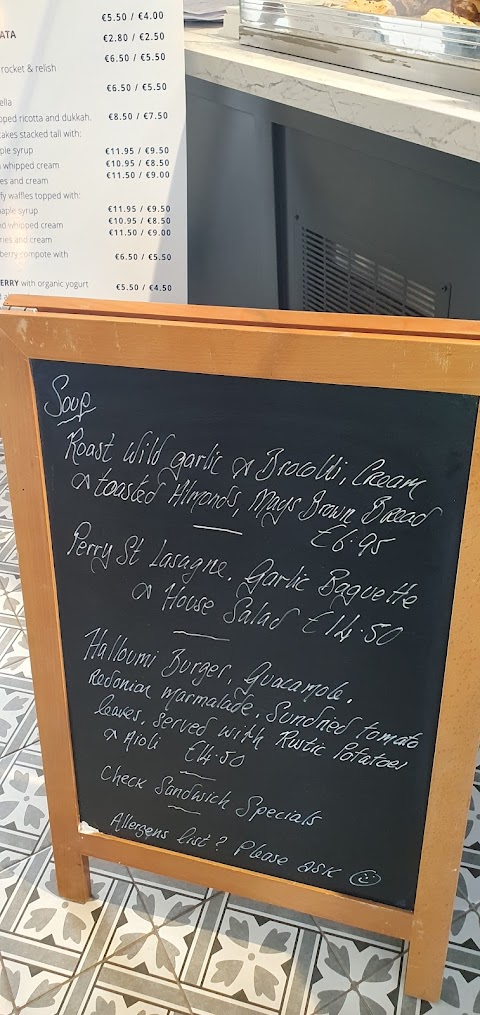 €5.50 / €4.00
ATA €2.80 / €2.50
€6.50 / €5.50
rocket & relish
€6.50 / €5.50
elia
pped ricotta and dukkah. €8.50 / €7.50
cakes stacked tall with:
ple syrup €11.95 / €9.50
whipped cream €10.95 / €8.50
es and cream €11.50 / €9.00
fy waffles topped with:
aple syrup €11.95 / €9.50
nd whipped cream €10.95 / €8.50
ries and cream €11.50 / €9.00
berry compote with
€6.50 / €5.50
ERRY with organic yogurt €5.50 / €4.50
Soup
Roast Wild garlic & Brocolli, Cream
& toasted Almonds, Mags Brown Bread
€6.95
Perry St Lasagne, Garlic Baguette
& House Salad €14.50
Halloumi Burger, Guacamole,
Redonion marmalade, Sundried tomato
leaves, served with Rustic Potatoes
& Aioli €14.50
Check Sandwich Specials
Allergens list? Please ask ☺